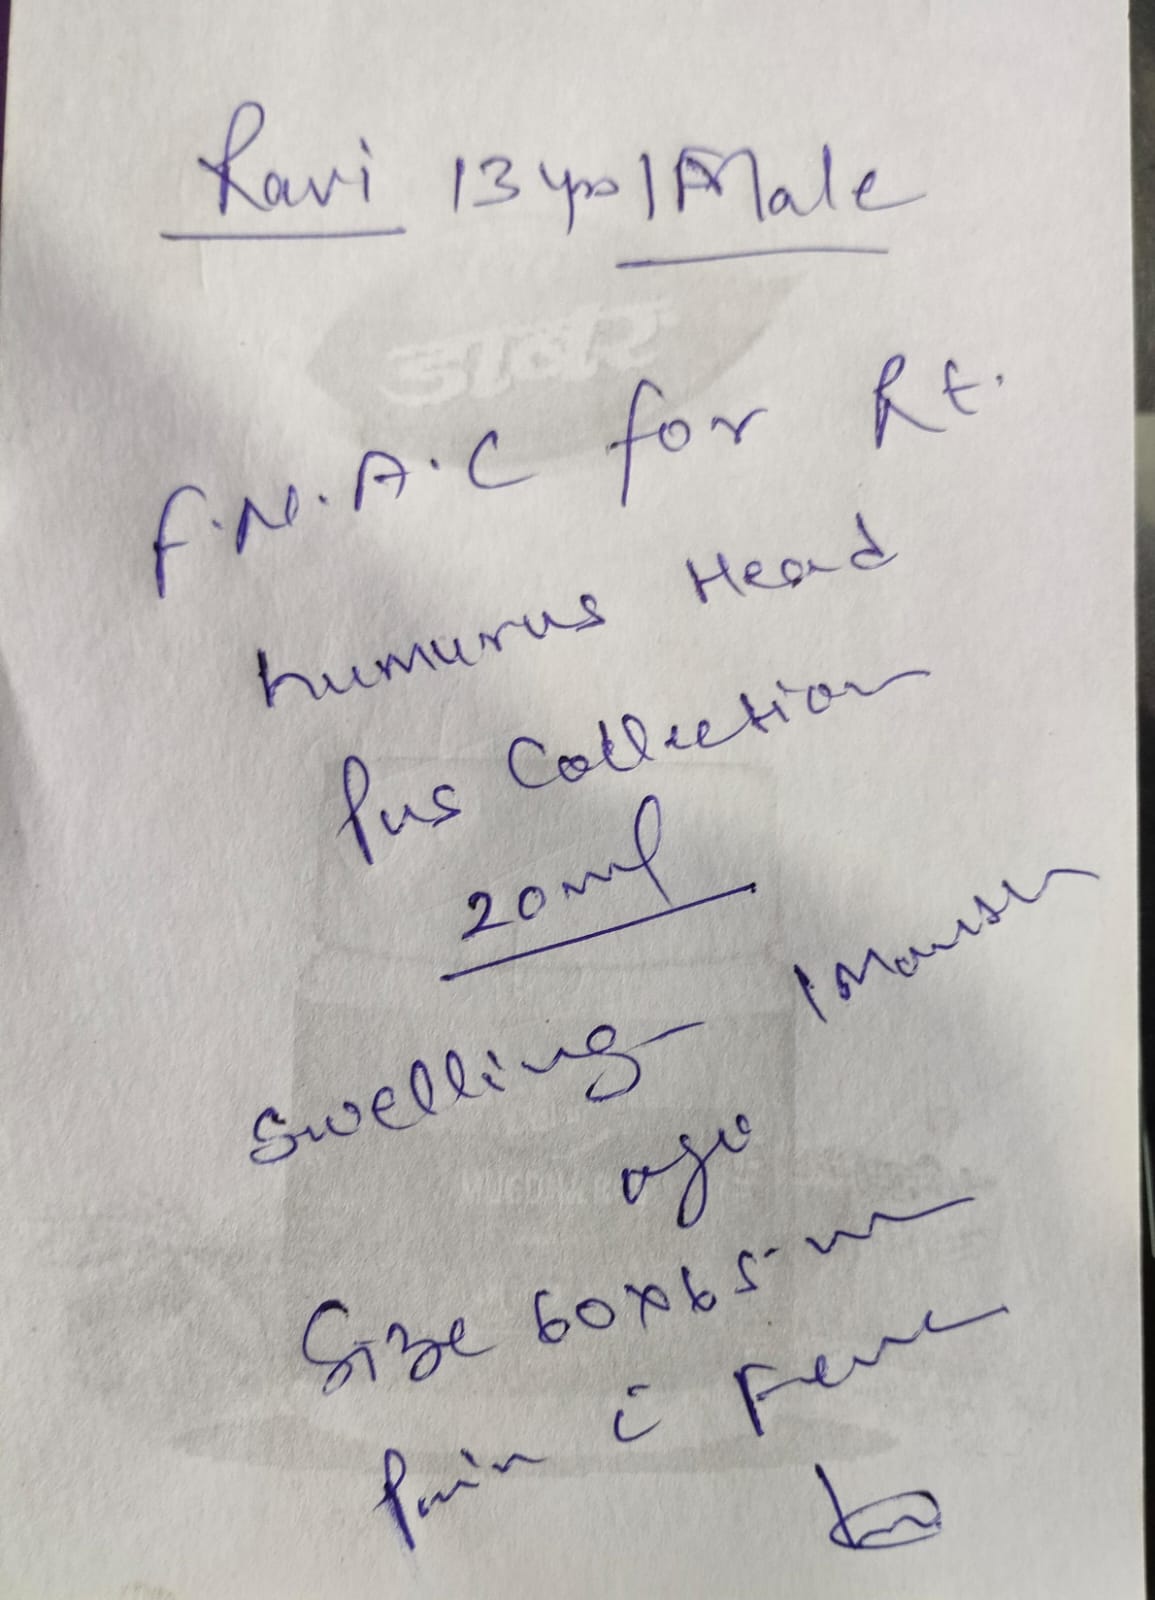 Ravi 13 yrs / Male
F.N.A.C for Rt.
humurus Head
Pus Collection
20 ml
Swelling - 1 Month
ago
Size 60x65 m
Pain c̄ Fever
डाबर